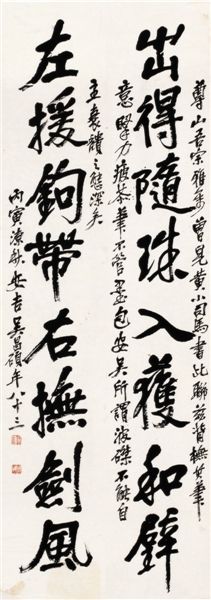 尊山吾宗雅屬曾見黃小司馬書此聯茲背橅其筆
出得隨珠入獲和璧
意力疲筆不管墨包安吳所謂磔不能自
主之態深矣
左援鉤帶右撫劍風
丙寅涼秋安吉吳昌碩年八十三